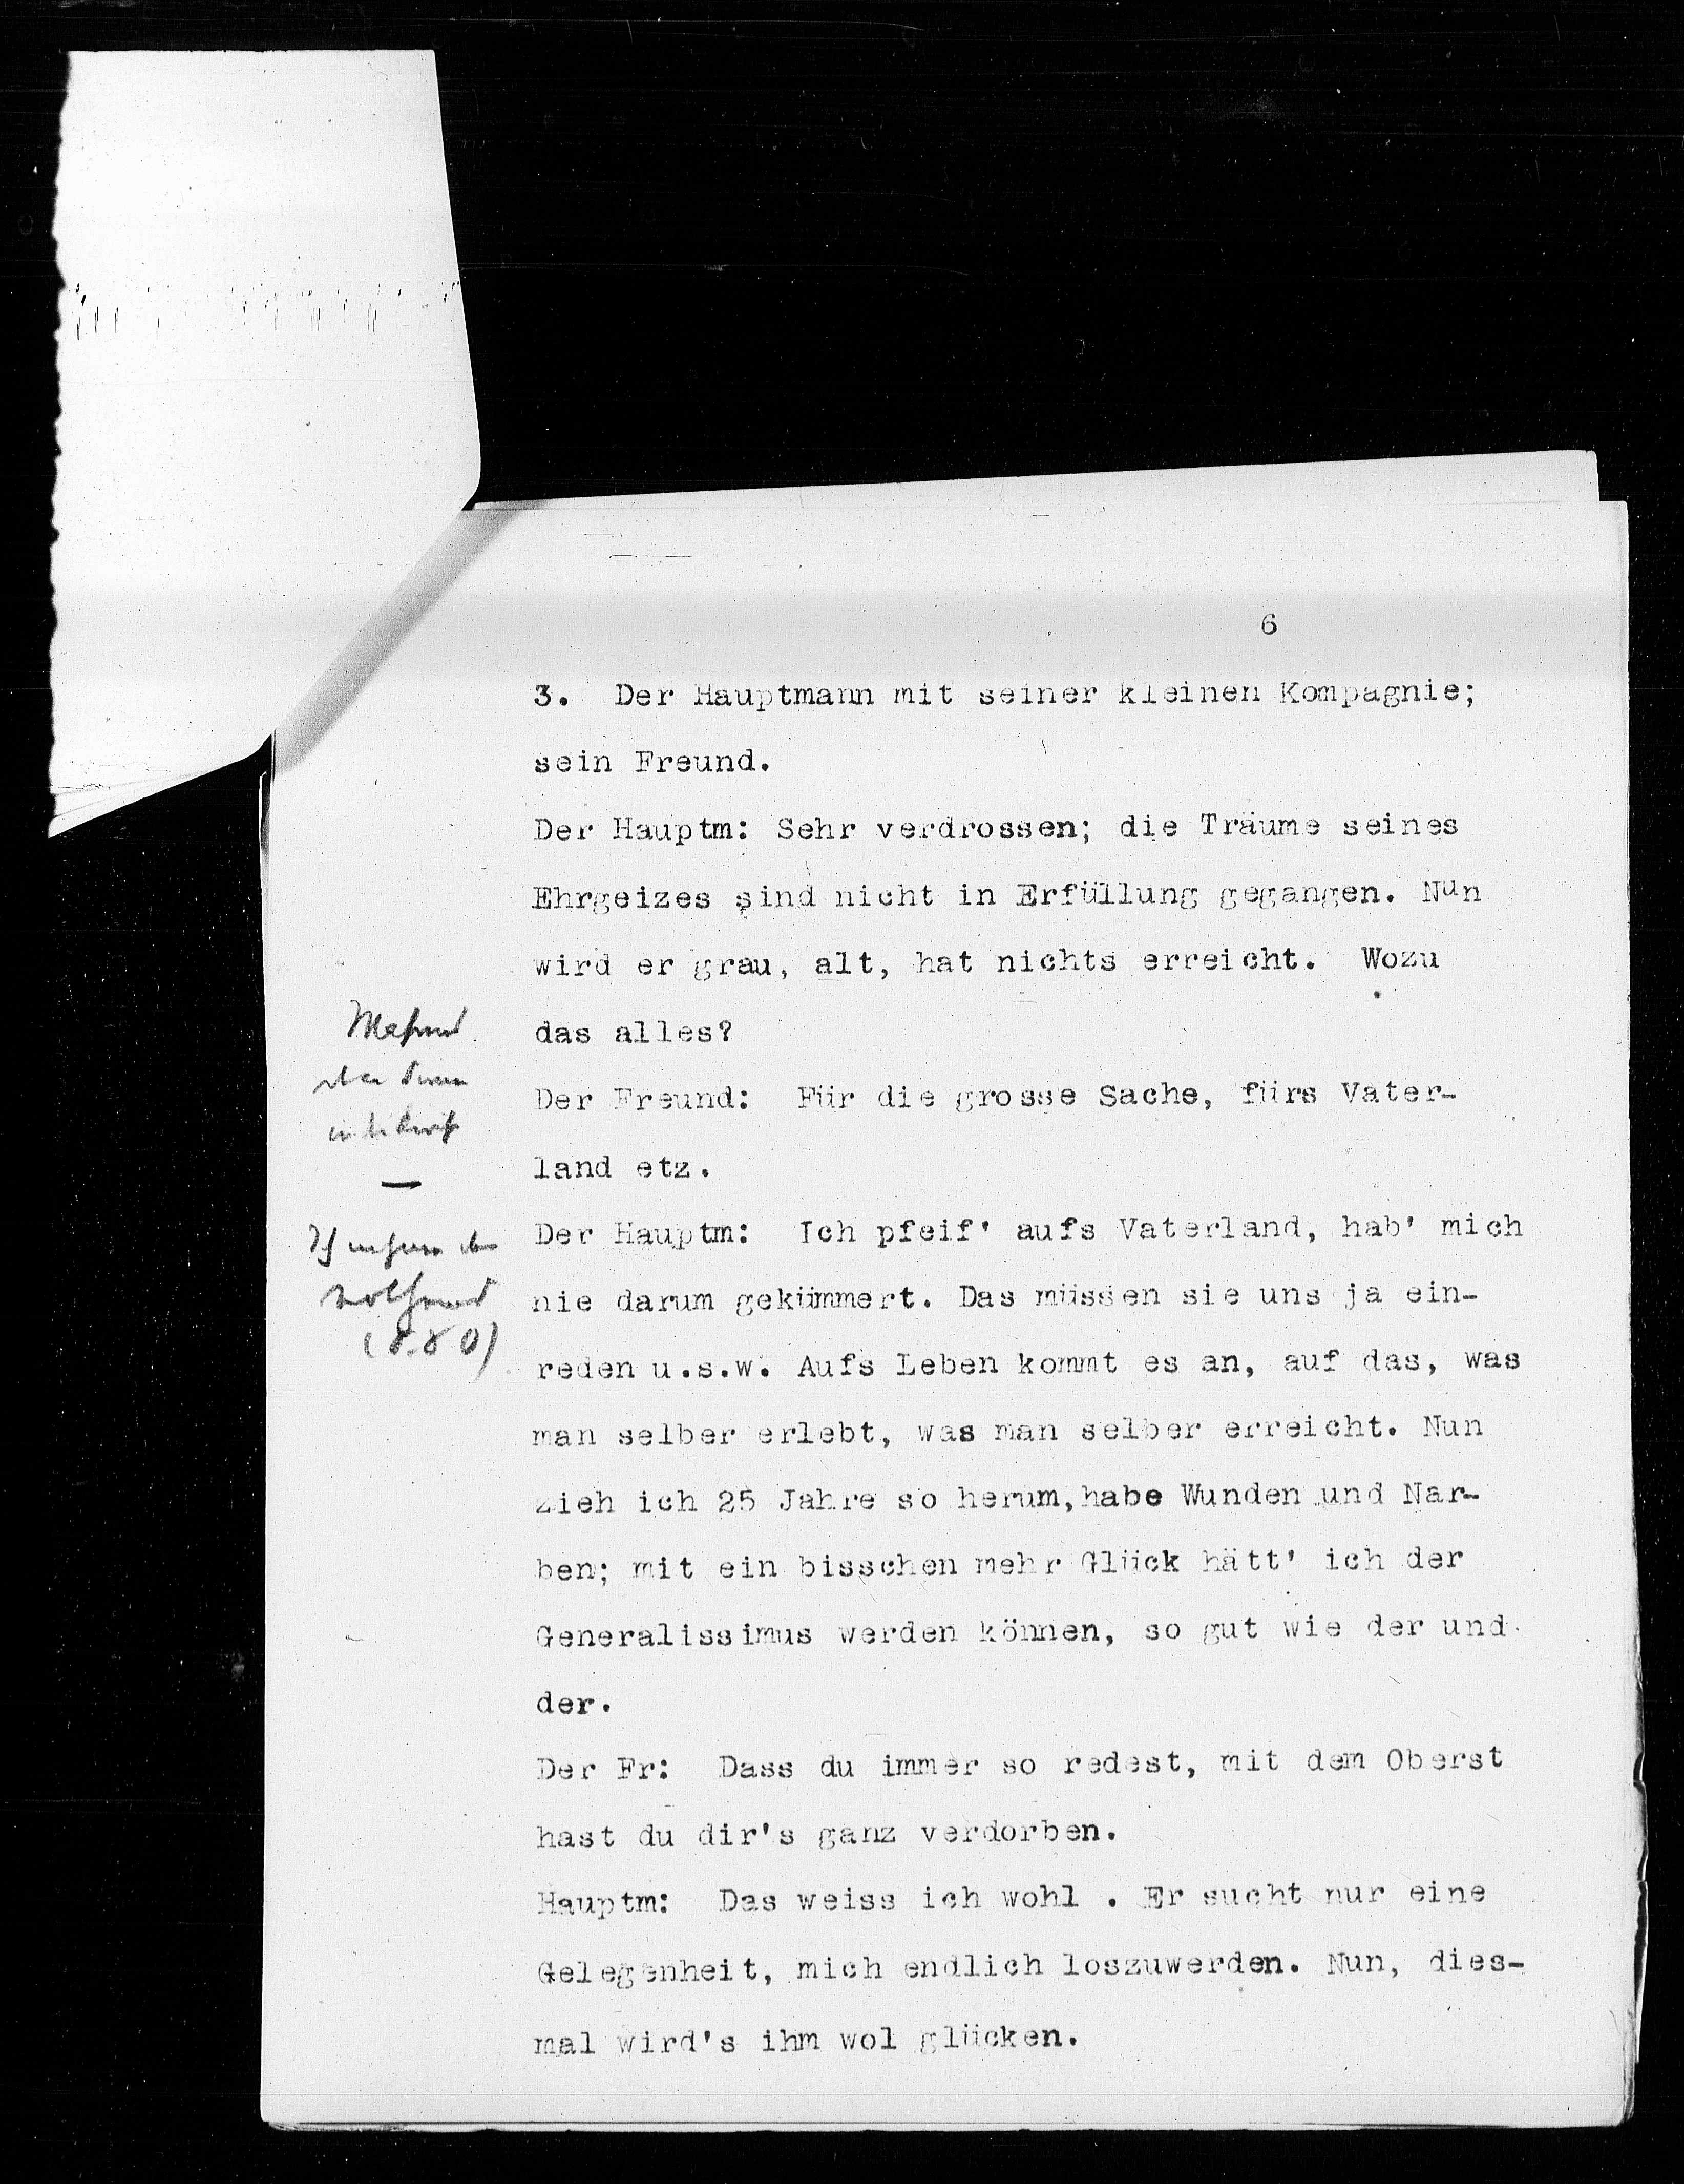 6
3. Der Hauptmann mit seiner kleinen Kompagnie;
sein Freund.
Der Hauptm: Sehr verdrossen; die Träume seines
Ehrgeizes sind nicht in Erfüllung gegangen. Nun
wird er grau, alt, hat nichts erreicht. Wozu
das alles?
Der Freund: Für die grosse Sache, fürs Vater-
land etz.
Der Hauptm: Ich pfeif' aufs Vaterland, hab' mich
nie darum gekümmert. Das müssen sie uns ja ein-
reden u.s.w. Aufs Leben kommt es an, auf das, was
man selber erlebt, was man selber erreicht. Nun
zieh ich 25 Jahre so herum, habe Wunden und Nar-
ben; mit ein bisschen mehr Glück hätt' ich der
Generalissimus werden können, so gut wie der und
der.
Der Fr: Dass du immer so redest, mit dem Oberst
hast du dir's ganz verdorben.
Hauptm: Das weiss ich wohl . Er sucht nur eine
Gelegenheit, mich endlich loszuwerden. Nun, dies-
mal wird's ihm wol glücken.